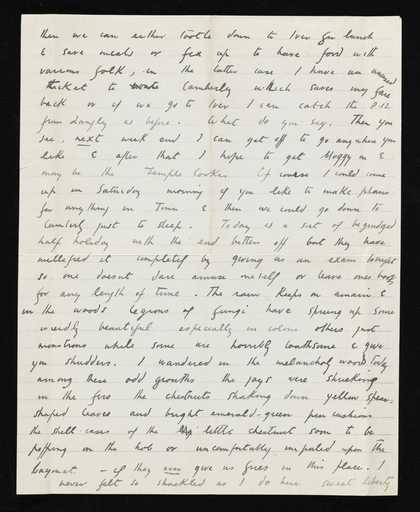 then we can either tootle down to Iver for lunch
& save meals or fix up to have food with
various folk, in the latter case I have an unused
ticket to Camberley which saves my fare
back or if we go to Iver I can catch the 8.12
from Langley as before. What do you say. Then you
see, next week end I can get off to go anywhere you
like & after that I hope to get Moggy in &
may be the Temple Cookes. If course I could come
up on Saturday morning if you like to make plans
for anything in Town & then we could go down to
Camberly just to sleep. Today is a sort of begrudged
half holiday with the and butter off but they have
nullified it completely by giving us an exam tonight
so one doesnt dare amuse oneself or leave ones books
for any length of time. The rain keeps on amain &
in the woods legions of fungi have sprung up some
weirdly beautiful especially in colour others just
monstrous while some are horribly loathsome & give
you shudders. I wandered in the melancholy woods today
among these odd growths the jays were shrieking
in the firs the chestnuts shaking down yellow spear-
shaped leaves and bright emerald-green pin cushions
the shell-cases of the little chestnut soon to be
popping on the hob or uncomfortably impaled upon the
bayonet - if they ever give us fires in this place. I
never felt so shackled as I do here sweet liberty